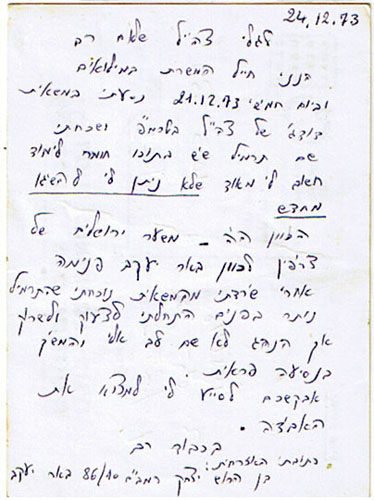 24.12.73
לגלי צה״ל שלום רב
הנני חייל המשרת במילואים
וביום חמישי 21.12.73 נסעתי במשאית
דודג׳ של צה״ל בטרמפ ושכחתי
שם תרמיל שיש בתוכו חומר לימוד
חשוב לי מאוד שלא ניתן לי להשיגו
מחדש
הכוון היה - משער ירושלים של
צריפין לכוון באר יעקב פנימה
אחרי שירדתי מהמשאית נוכחתי שהתרמיל
נותר בפנים התחלתי לצעוק ולשרוק
אך הנהג לא שם לב אלי והמשיך
בנסיעה פראית.
אבקשכם לסייע לי למצוא את
האבדה.
בכבוד רב
כתובתי האזרחית:
בן הרוש יצחק רמב״ם 86/10 באר יעקב